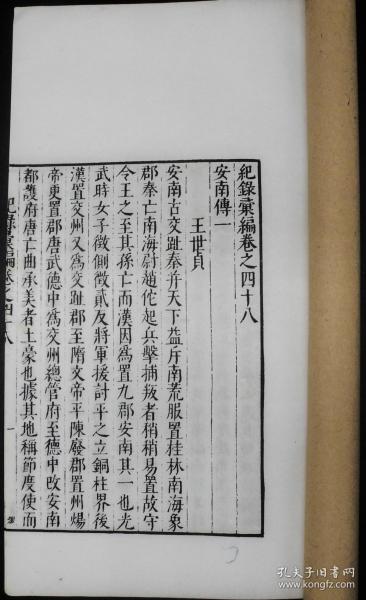 紀錄彙編卷之四十八
安南傳一
王世貞
安南古交趾秦并天下益斥南荒服置桂林南海象
郡秦亡南海尉趙佗起兵擊捕叛者稍稍易置故守
令王之至其孫亡而漢因爲置九郡安南其一也光
武時女子徵側徵貳反將軍援討平之立銅柱界後
漢置交州又爲交趾郡至隋文帝平陳廢郡置州煬
帝更置郡唐武德中爲交州總管府至德中改安南
都護府唐亡曲承美者土豪也據其地稱節度使而
紀錄彙編卷之四十八
一
孔夫子旧书网